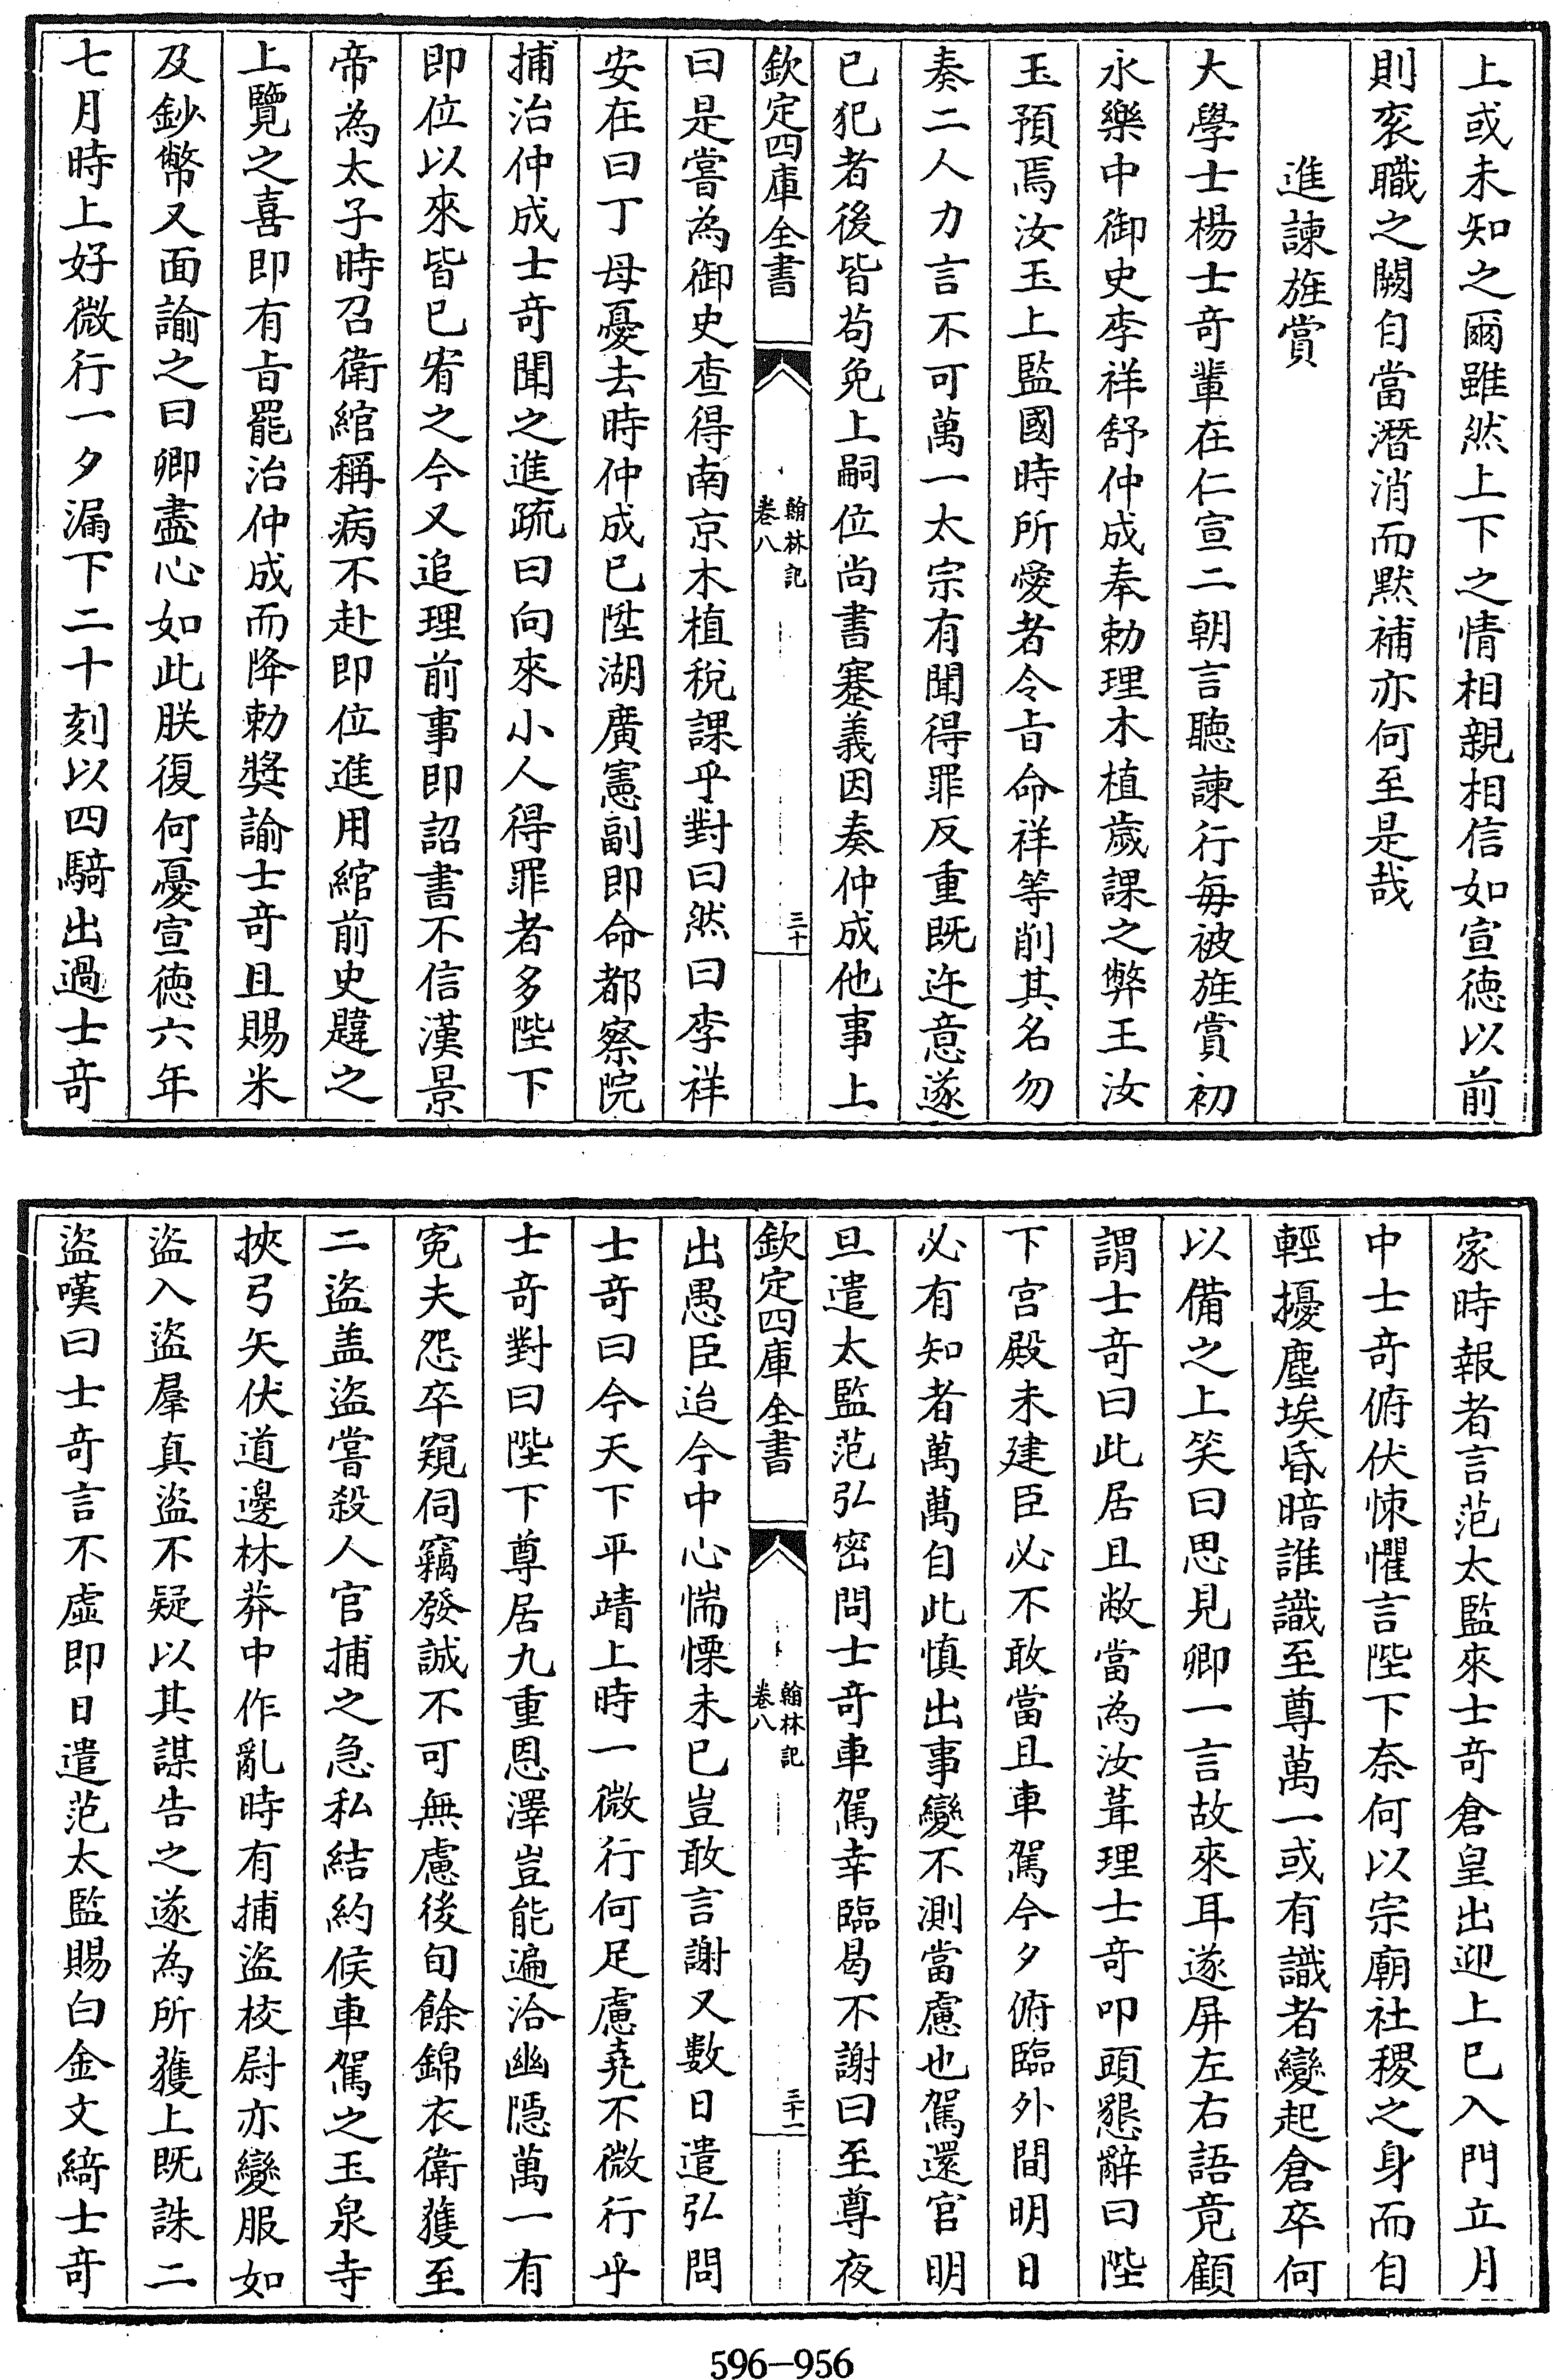 上或未知之爾雖然上下之情相親相信如宣徳以前
則衮職之闕自當潛消而默補亦何至是哉
進諫旌賞
大學士楊士竒輩在仁宣二朝言聽諫行每被旌賞初
永樂中御史李祥舒仲成奉勅理木植歲課之弊王汝
玉預焉汝玉上監國時所愛者令㫖命祥等削其名勿
奏二人力言不可萬一太宗有聞得罪反重既迕意遂
已犯者後皆茍免上嗣位尚書蹇義因奏仲成他事上
欽定四庫全書
翰林記
卷八
三十
曰是嘗為御史查得南京木植稅課乎對曰然曰李祥
安在曰丁母憂去時仲成已陞湖廣憲副即命都察院
捕治仲成士竒聞之進疏曰向來小人得罪者多陛下
即位以來皆已宥之今又追理前事即詔書不信漢景
帝為太子時召衛綰稱病不赴即位進用綰前史韙之
上覽之喜即有㫖罷治仲成而降勅奬諭士竒且賜米
及鈔幣又面諭之曰卿盡心如此朕復何憂宣徳六年
七月時上好微行一夕漏下二十刻以四騎出過士竒
家時報者言范太監來士竒倉皇出迎上已入門立月
中士竒俯伏悚懼言陛下奈何以宗廟社稷之身而自
輕擾塵埃昏暗誰識至尊萬一或有識者變起倉卒何
以備之上笑曰思見卿一言故來耳遂屏左右語竟顧
謂士竒曰此居且敝當為汝葺理士竒叩頭懇辭曰陛
下宫殿未建臣必不敢當且車駕今夕俯臨外間明日
必有知者萬萬自此慎出事變不測當慮也駕還官明
旦遣太監范弘密問士竒車駕幸臨曷不謝曰至尊夜
欽定四庫全書
翰林記
卷八
三十一
出愚臣迨今中心惴慄未已豈敢言謝又數日遣弘問
士竒曰今天下平靖上時一微行何足慮堯不微行乎
士竒對曰陛下尊居九重恩澤豈能遍洽幽隱萬一有
寃夫怨卒窺伺竊發誠不可無慮後旬餘錦衣衛獲至
二盜盖盜嘗殺人官捕之急私結約候車駕之玉泉寺
挾弓矢伏道邊林莽中作亂時有捕盜校尉亦變服如
盜入盜羣真盜不疑以其謀告之遂為所獲上既誅二
盜嘆曰士竒言不虛即日遣范太監賜白金文綺士竒
596-956